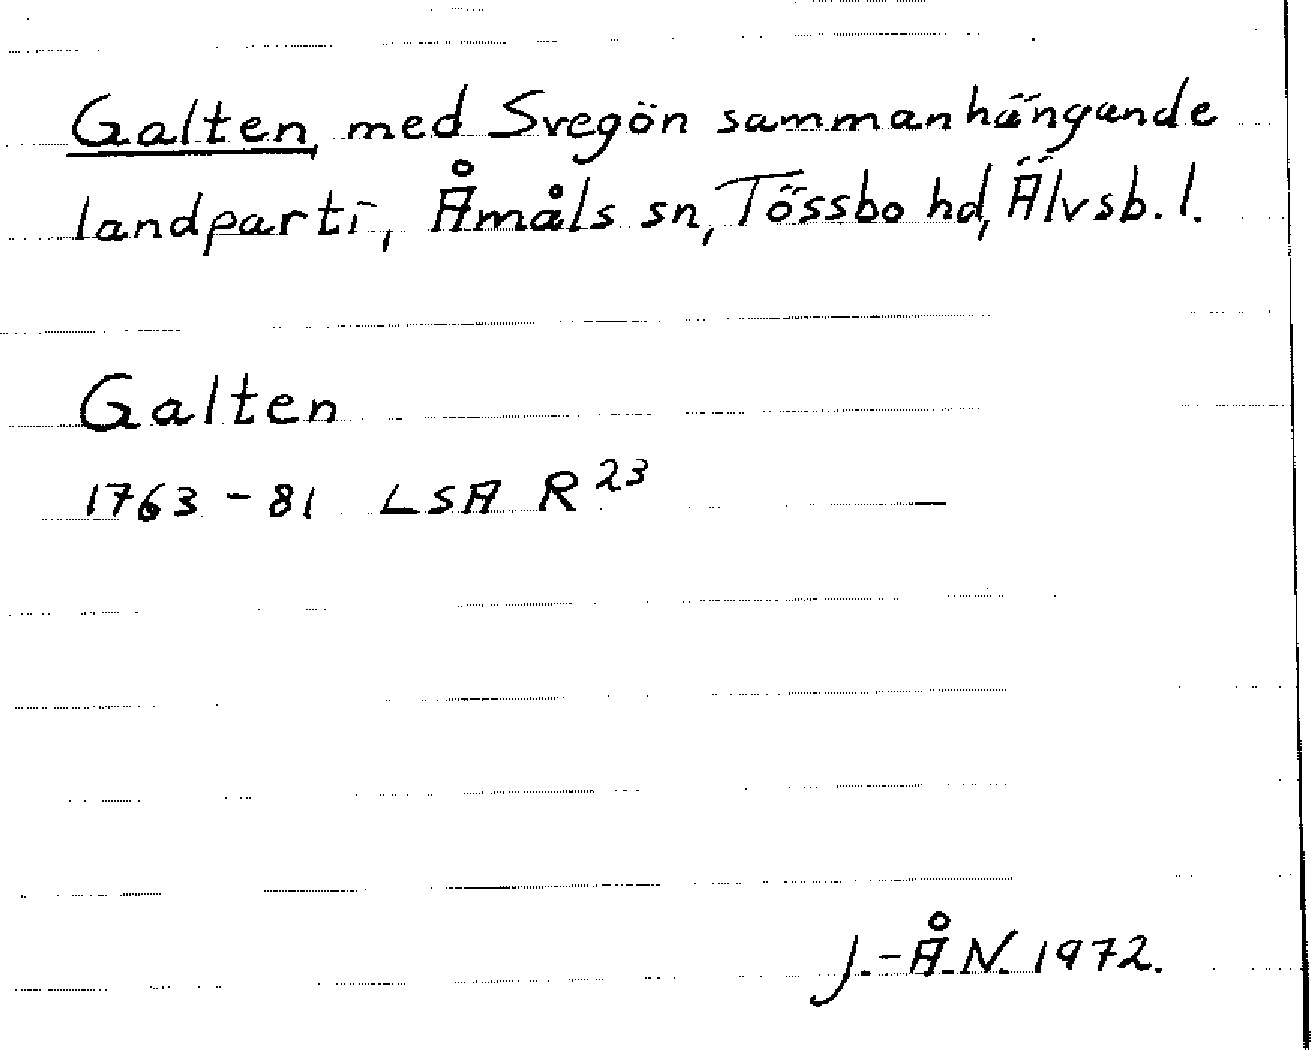 Galten, med Svegön sammanhängande
landparti, Åmåls sn, Tössbo hd, Älvsb. l.
Galten
1763-81 LSA R 23
J.-Å.N. 1972.